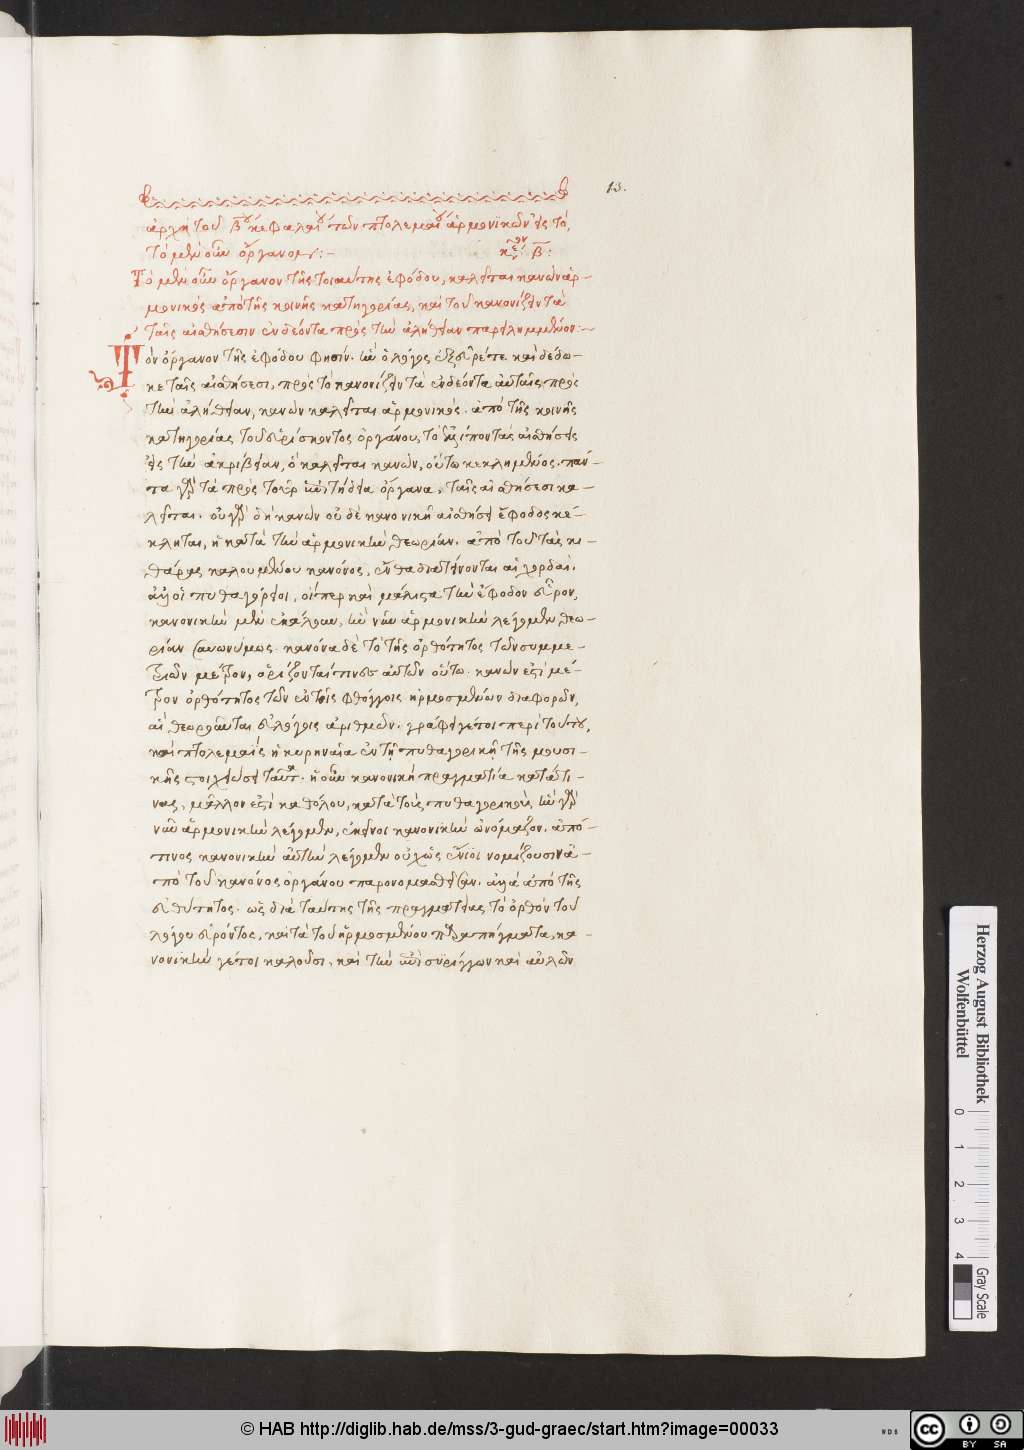 13.
ἀρχὴ τοῦ β̅ου κεφαλαίου τῶν πτολεμαίου ἁρμονικῶν εἰς τό,
τὸ μὲν οὖν ὄργανον:
κε: β̅:
Τὸ μὲν οὖν ὄργανον τῆς τοιαύτης ἐφόδου, καλεῖται κανὼν ἁρ-
μονικὸς ἀπὸ τῆς κοινῆς κατηγορίας, καὶ τοῦ κανονίζειν τὰ
ταῖς αἰσθήσεσιν ἐνδέοντα πρὸς τὴν ἀλήθειαν παρειλημμένον:-
Τὸν ὄργανον τῆς ἐφόδου φησίν. ἣν ὁ λόγος ἐξεῦρέ τε καὶ δέδω-
κε ταῖς αἰσθήσεσι, πρὸς τὸ κανονίζειν τὰ ἐνδέοντα αὐταῖς πρὸς
τὴν ἀλήθειαν, κανὼν καλεῖται ἁρμονικός. ἀπὸ τῆς κοινῆς
κατηγορίας τοῦ εὑρίσκοντος ὀργάνου, τὸ λεῖπον ταῖς αἰσθήσεσ
εἰς τὴν ἀκρίβειαν, ὃ καλεῖται κανών, οὕτω κεκλημένος. πάν-
τα γὰρ τὰ πρὸς τοῦτο ἐπιτήδεια ὄργανα, ταῖς αἰσθήσεσι κα-
λεῖται. οὐ γὰρ δὴ κανὼν οὐδὲ κανονικὴ αἰσθήσει ἔφοδος κέ-
κληται, ἡ κατὰ τὴν ἁρμονικὴν θεωρίαν. ἀπὸ τοῦ ταῖς κι-
θάραις καλουμένου κανόνος, ἔνθα διατείνονται αἱ χορδαί.
ἀλλ' οἱ πυθαγόρειοι, οἵπερ καὶ μάλιστα τὴν ἔφοδον εὗρον,
κανονικὴν μὲν ἐκάλουν, ἣν νῦν ἁρμονικὴν λέγομεν θεω-
ρίαν συνωνύμως. κανόνα δὲ τὸ τῆς ὀρθότητος τῶν συμμε-
τριῶν μέτρον, ὁρίζονται τινες αὐτῶν οὕτω. κανών ἐστι μέ-
τρον ὀρθότητος τῶν ἐν τοῖς φθόγγοις ἡρμοσμένων διαφορῶν,
αἳ θεωροῦνται ἐν λόγοις ἀριθμῶν. γράφει γέτοι περὶ τούτου,
καὶ πτολεμαῒς ἡ κυρηναία ἐν τῇ πυθαγορικῇ τῆς μουσι-
κῆς στοιχειώσει ταῦτα. ἡ οὖν κανονικὴ πραγματεία κατά τι-
νας, μᾶλλον ἐστὶ καθόλου, κατὰ τοὺς πυθαγορικούς, ἣν γὰρ
νῦν ἁρμονικὴν λέγομεν, ἐκεῖνοι κανονϊκὴν ὠνόμαζον. ἀπό
τινος κανονικὴν αὐτὴν λέγομεν οὐχ ὡς ἔνϊοι νομίζουσιν ἀ-
πὸ τοῦ κανόνος ὀργάνου παρονομασθεῖσαν. ἀλλὰ ἀπὸ τῆς
εὐθύτητος. ὡς διὰ ταύτης τῆς πραγματείας τὸ ὀρθὸν τοῦ
λόγου εὑρόντος, καὶ τὰ τοῦ ἡρμοσμένου παραπήγματα, κα-
νονϊκὴν γέτοι καλοῦσι, καὶ τὴν ἐπὶ συρίγγων καὶ αὐλῶν
Herzog August Bibliothek
Wolfenbüttel
0 1 2 3 4
Gray Scale
© HAB http://diglib.hab.de/mss/3-gud-graec/start.htm?image=00033
WDB
cc BY SA